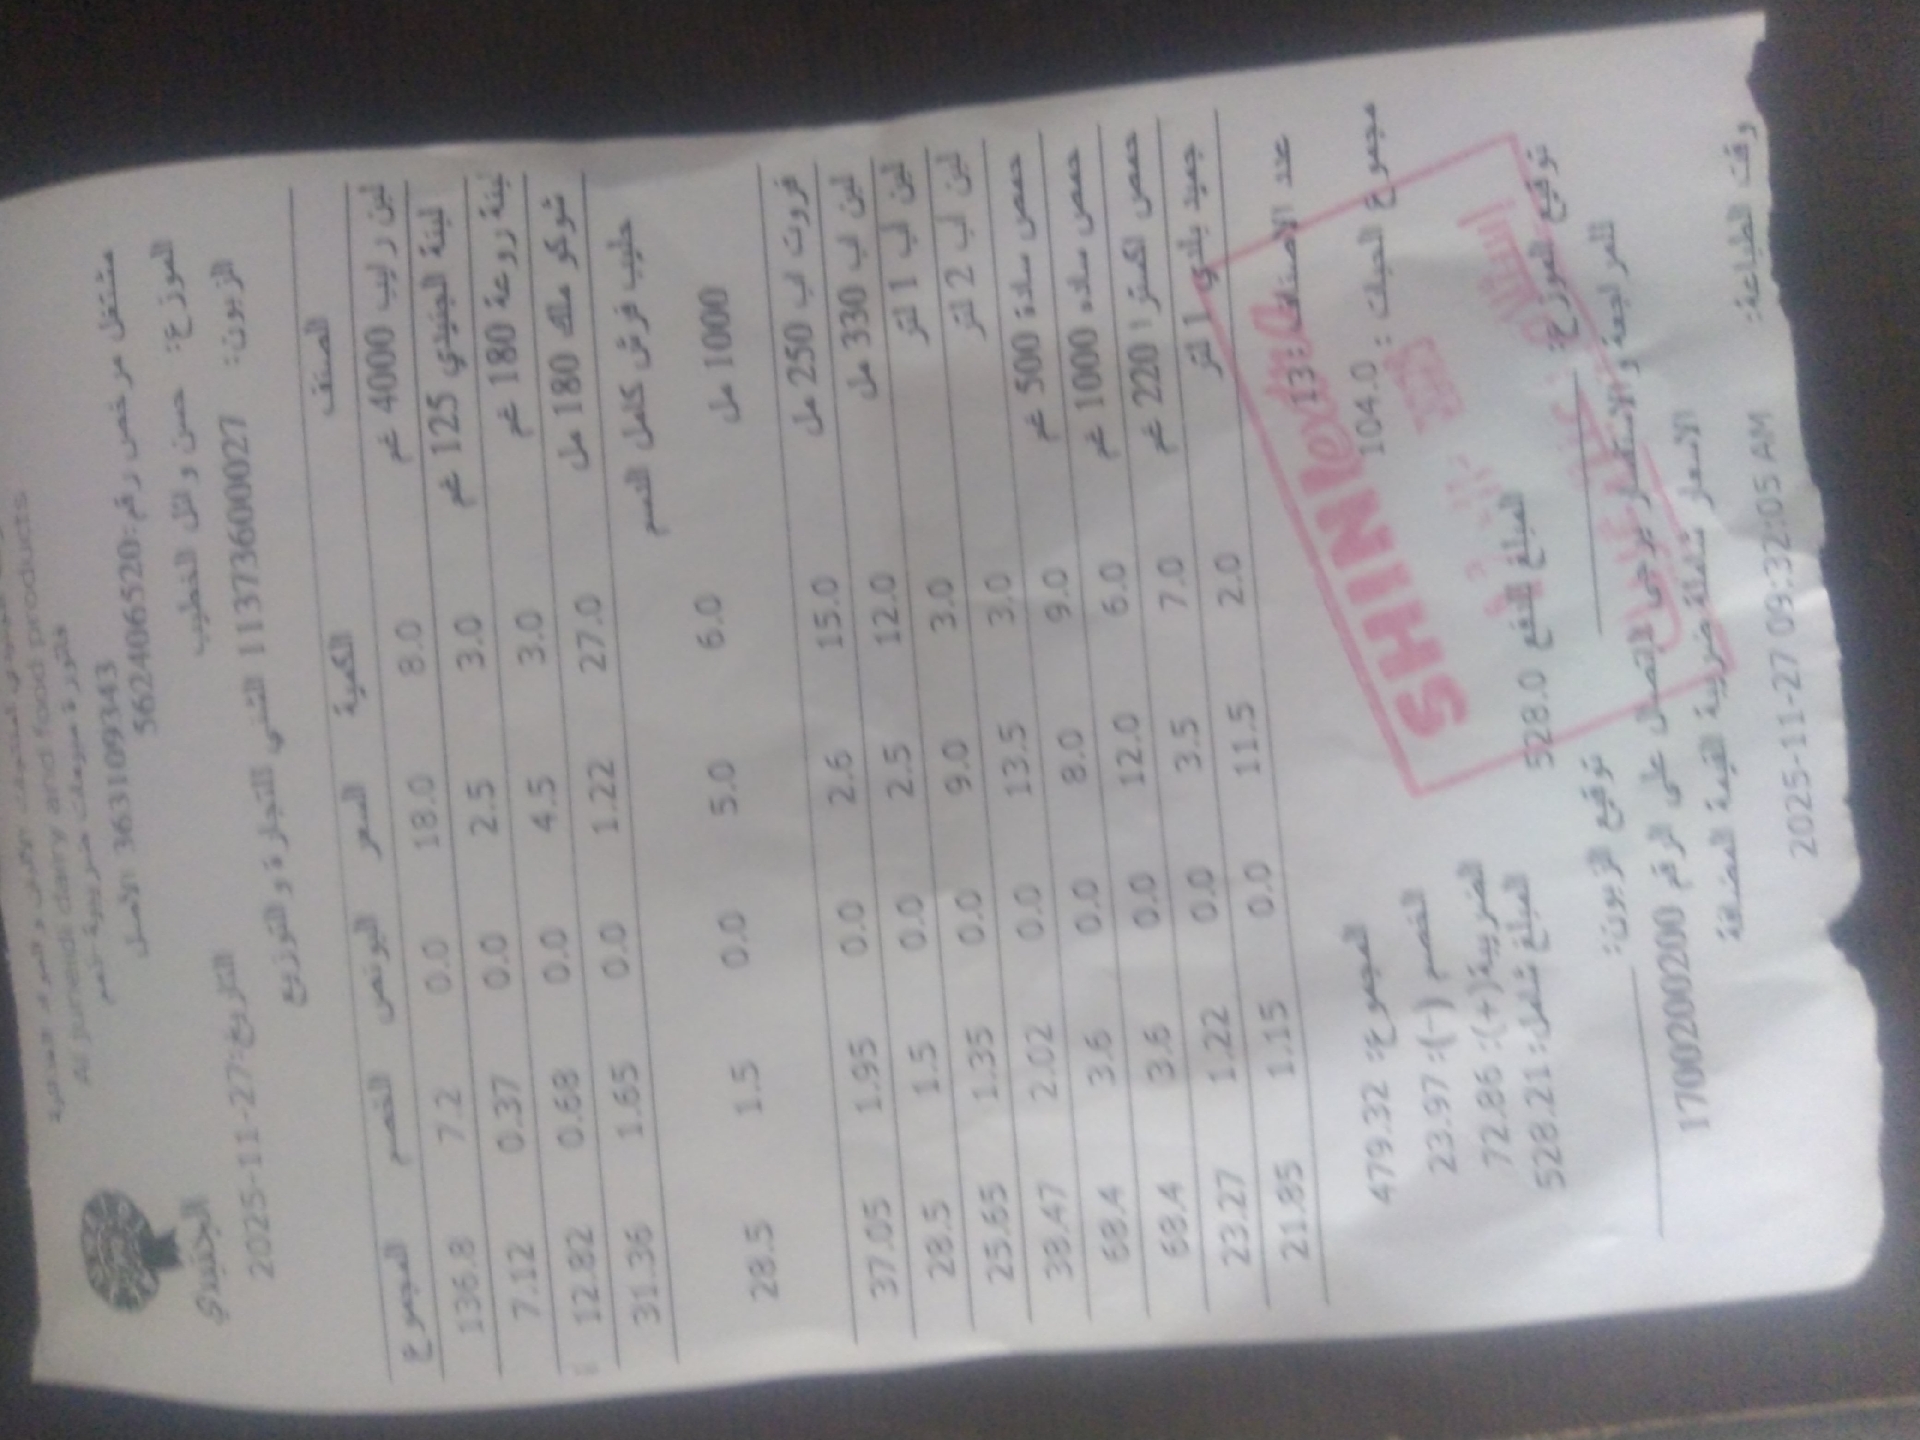 Al juneidi dairy and food products
فاتورة مبيعات ضريبية -ذمم
مشتغل مرخص رقم:562406520
363131093343 الأصل
الجنيدي
الموزع: حسن وائل الخطيب
التاريخ:27-11-2025
الزبون: 1137360000027 الشني للتجارة والتوزيع
الصنف الكمية السعر البونص الخصم المجموع
لبن رايب 4000 غم 8.0 18.0 0.0 7.2 136.8
لبنة الجنيدي 125 غم 3.0 2.5 0.0 0.37 7.12
لبنة روعة 180 غم 3.0 4.5 0.0 0.68 12.82
شوكو ملك 180 مل 27.0 1.22 0.0 1.65 31.36
حليب فرش كامل الدسم
1000 مل 6.0 5.0 0.0 1.5 28.5
فروت اب 250 مل 15.0 2.6 0.0 1.95 37.05
لبن اب 330 مل 12.0 2.5 0.0 1.5 28.5
لبن اب 1 لتر 3.0 9.0 0.0 1.35 25.65
لبن اب 2 لتر 3.0 13.5 0.0 2.02 38.47
حمص سادة 500 غم 9.0 8.0 0.0 3.6 68.4
حمص ساده 1000 غم 6.0 12.0 0.0 3.6 68.4
حمص اكسترا 220 غم 7.0 3.5 0.0 1.22 23.27
جميد بلدي 1 لتر 2.0 11.5 0.0 1.15 21.85
عدد الاصناف: 13
مجموع الحبات : 104.0
المجموع: 479.32
الخصم (-): 23.97
الضريبة(+): 72.86
المبلغ شامل: 528.21
المبلغ للدفع 528.0
SHINI extra
توقيع الموزع:
توقيع الزبون:
للمراجعة والاستفسار يرجى الاتصال على الرقم 1700200200
الاسعار شاملة ضريبة القيمة المضافة
وقت الطباعة:
2025-11-27 09:32:05 AM